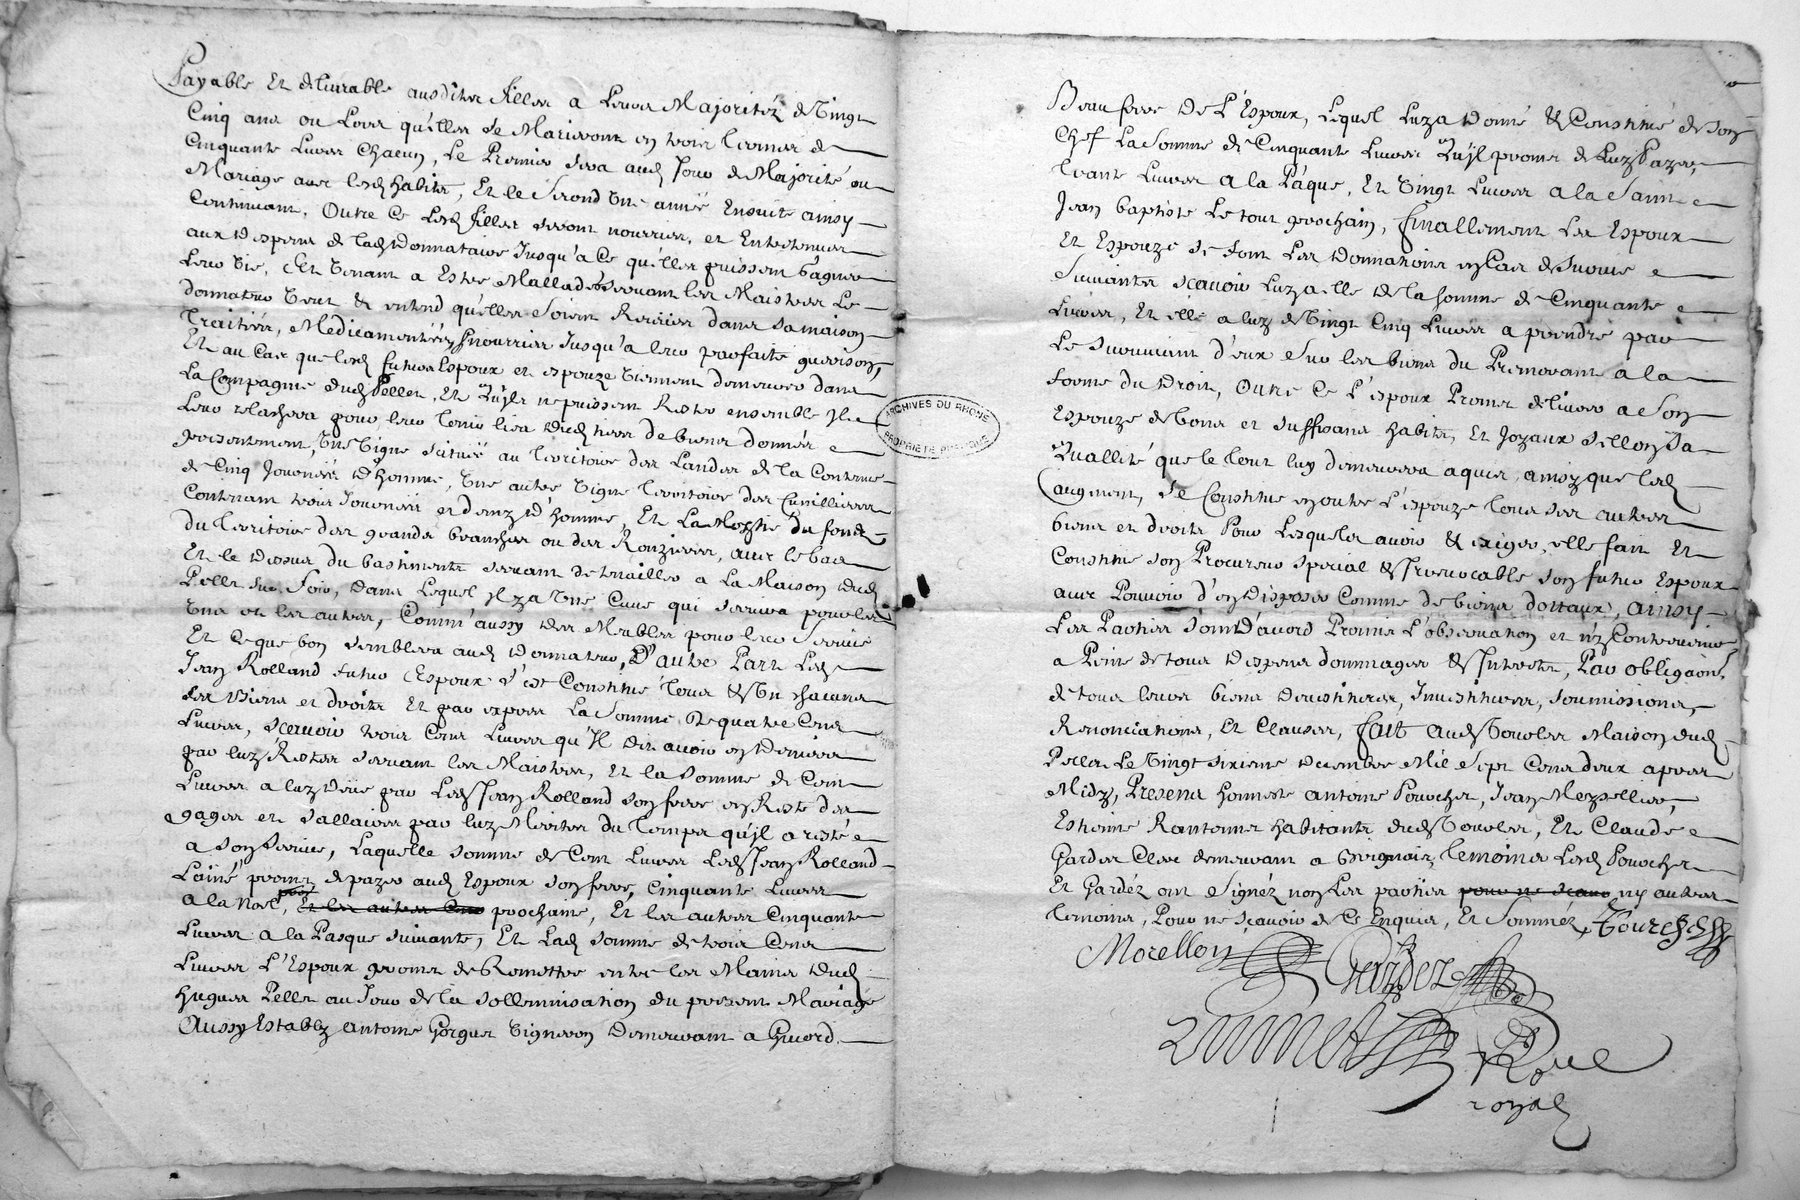 Payable Et délivrable ausdites filles a Leurs Majoritéz de Vingt
Cinq ans ou Lors qu'elles se Marieront en trois termes de
Cinquante Livres Chacun, Le Premier sera aud Jour de Majorité ou
Mariage avec lesd habits, Et le Second Une année Ensuite ainsy
Continuant, Outre Ce Lesd filles seront nourries, et Entretenues
aux despens de lad donnataire Jusqu'à Ce qu'elles puissent Gagner
Leur Vie, Et Venant a Estre Mallades servant les Maistres Le
donnateur Veut & entend qu'elles Soient Reçües dans sa maison
Traitées, Médicamentées, & nourries Jusqu'a leur parfaite guerison,
Et au Cas que lesd futurs Espoux et espouze Viennent demeurer dans
La Compagnie dud Pelles, Et Qu'jls ne puissent Rester ensemble Jl
Leur relaschera pour leur tenir lieu desd biens donnés
presentement, Une Vigne scituée au Territoire des Landes de la Contenue
de Cinq Journées d'homme, Une autre Vigne Territoire des Cunillieres
Contenant trois Journées et demy d'homme, Et La Moytié du fond
du Territoire des grandes branches ou des Ronzieres, avec le bas
Et le dessus du bastiment servant de tnailler a La Maison dud
Pelles Sur Soir, dans Lequel jl y a Une Cuve qui servira pour les
Uns et les autres, Comm'aussy des Meubles pour leur Service
Et Ce que bon Semblera aud donnateur, D'autre Part Led
Jean Rolland futur Espoux s'est Constitué tous & Un chacuns
ses Biens et droits Et par exprés La Somme De quatre Cens
Livres, Sçavoir trois Cens Livres qu'Jl dit avoir en Deniers
par luy Restés servant les Maistres, Et la Somme de Cent
Livres a luy Düe par Led Jean Rolland son frere en Reste des
gages et Sallaires par luy Merités du temps qu'jl a resté
a Son Service, Laquelle Somme de Cent Livres Led Jean Rolland
L'aîné promet de payer aud Espoux Son frere, Cinquante Livres
a la Noel, Et les autres Cinq prochaine, Et les autres Cinquante
Livres a la Pasque Suivante, Et Lad Somme de trois Cens
Livres L'Espoux promet de Remettre entre les Mains dud
hugues Pelles au Jour de la Sollemnisation du present Mariage
Aussy Estably antoine Gorgues Vigneron demeurant a Givord
Beau frere de L'Espoux, Lequel Luy a Donné & Constitué de Son
Chef La Somme de Cinquante Livres Qu'jl promet de Luy Payer,
trante Livres A la Pâque, Et Vingt Livres a la Saint
Jean baptiste Le tout prochain, finallement Les Espoux
Et Espouze Se font Les Donnations en Cas de Survie
Suivantes Sçavoir Luy a elle de la Somme de Cinquante
Livres, Et elle a luy de Vingt Cinq Livres a prendre par
Le Survivant d'eux Sur les biens du Premourant a la
forme du Droit, Outre Ce L'espoux Promet delivrer a Son
Espouze de bons et Suffisans habits, et Joyaux Sellon Sa
Quallité que le tout luy demeurera aquis, ainsy que led
augment, Se Constitue en outre L'espouze tous ses autres
biens et droits Pour Lesquels avoir & exiger, elle fait Et
Constitue Son Procureur Special & Jrrevocable Son futur Espoux
avec Pouvoir d'en disposer Comme de biens dottaux, ainsy
Les Parties Sont d'acord Promis L'observation et n'y Contrevenir
a Peine de tous despens dommages & Jnterets, Par obligaõn
de tous leurs biens devestitures, Jnvestitures, Soumissions,
Renonciations, Et Clauses, fait Aud Vourles Maison dud
Pelles Le Vingt Sixieme decembre Mil Sept Cens deux apres
Midy, Presens honneste antoine Pourcher, Jean Mezellier,
Estienne Rantonnet habitants dud Vourles, Et Claude
Gardes Clerc demeurant a Brignais, temoins Lesd Pourcher
Et Gardéz ont Signéz non Les parties pour ne Scavoir ny autres
temoins, Pour ne Sçavoir de Ce Enquis, Et Sommés, Pourchet
Morellon Gardez
not
royal